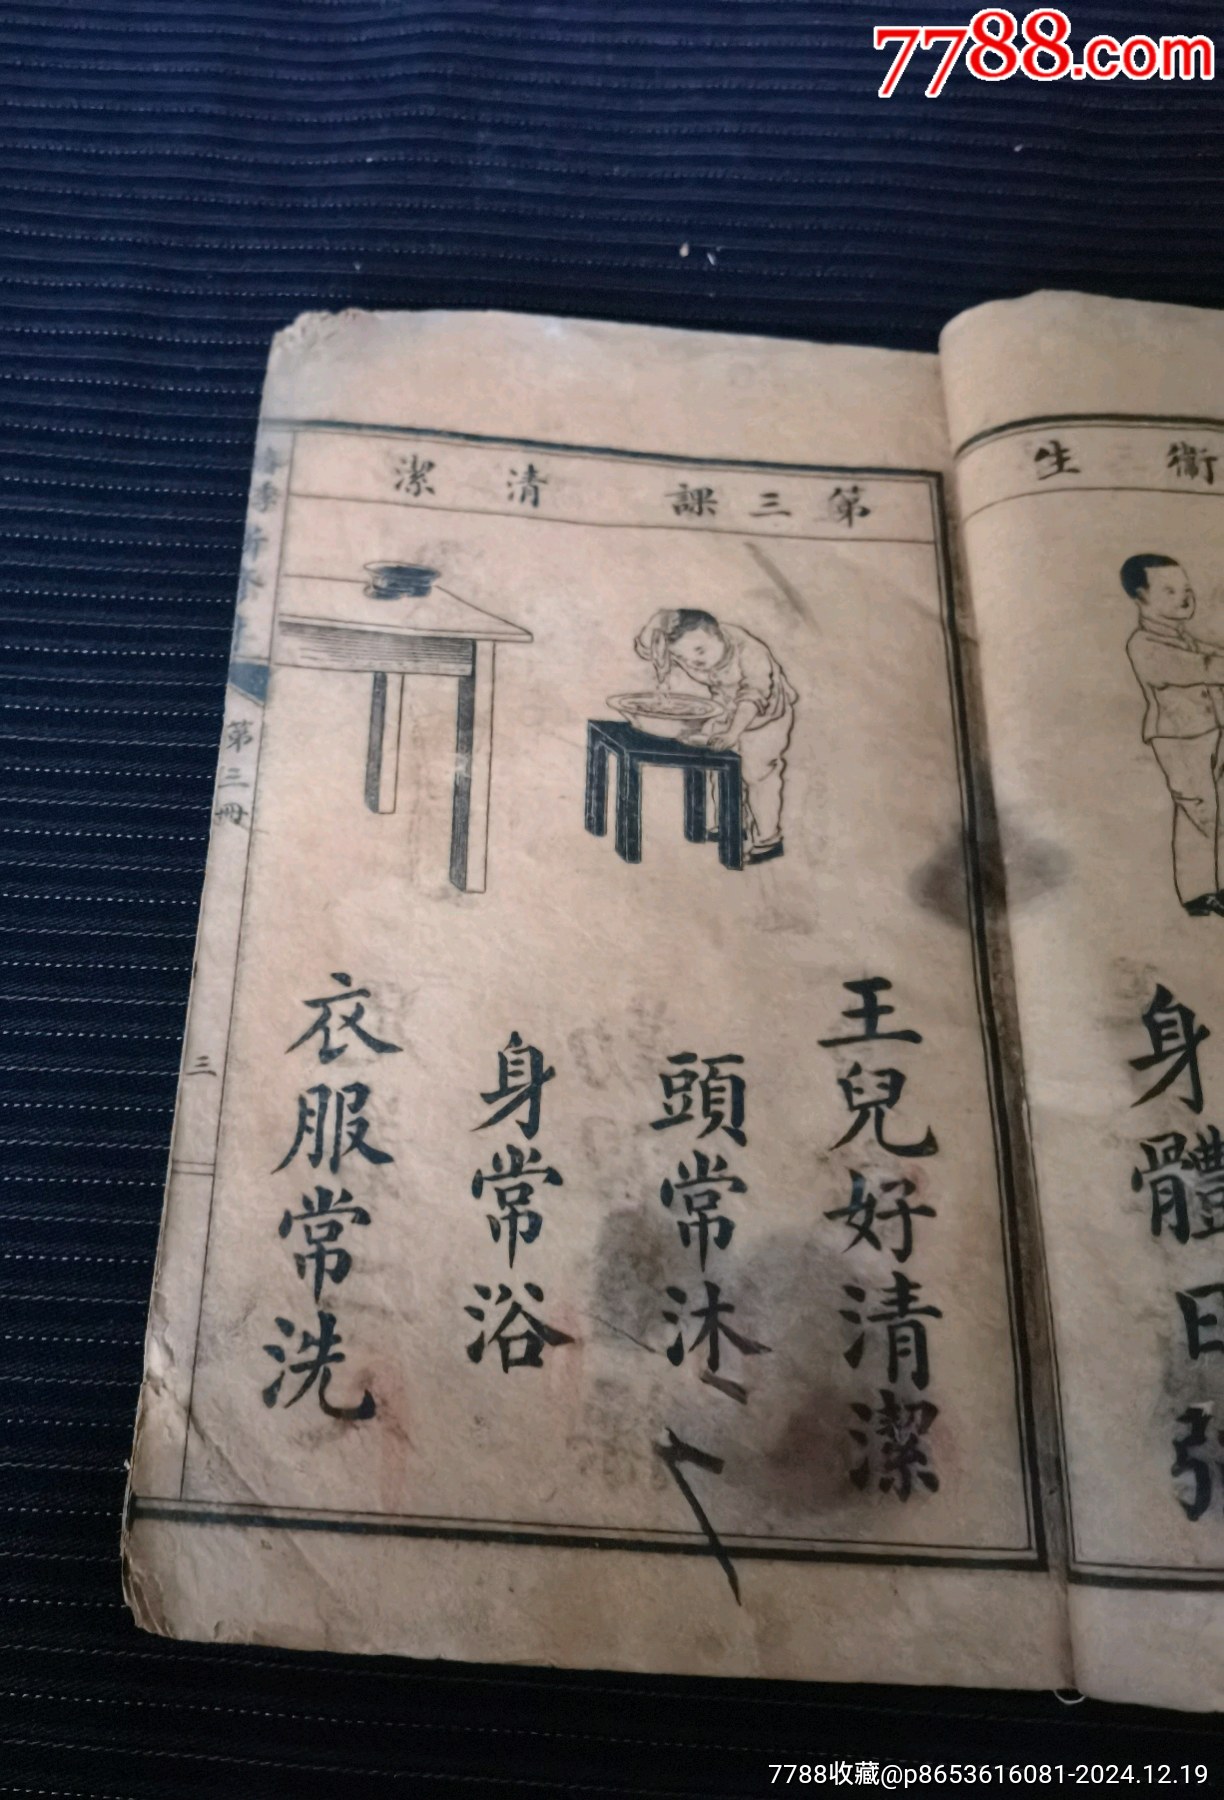 7788.com
衞生
身體日強
第三課 清潔
王兒好清潔
頭常沐
身常浴
衣服常洗
春季新本文
第三冊
三
7788收藏@p8653616081-2024.12.19